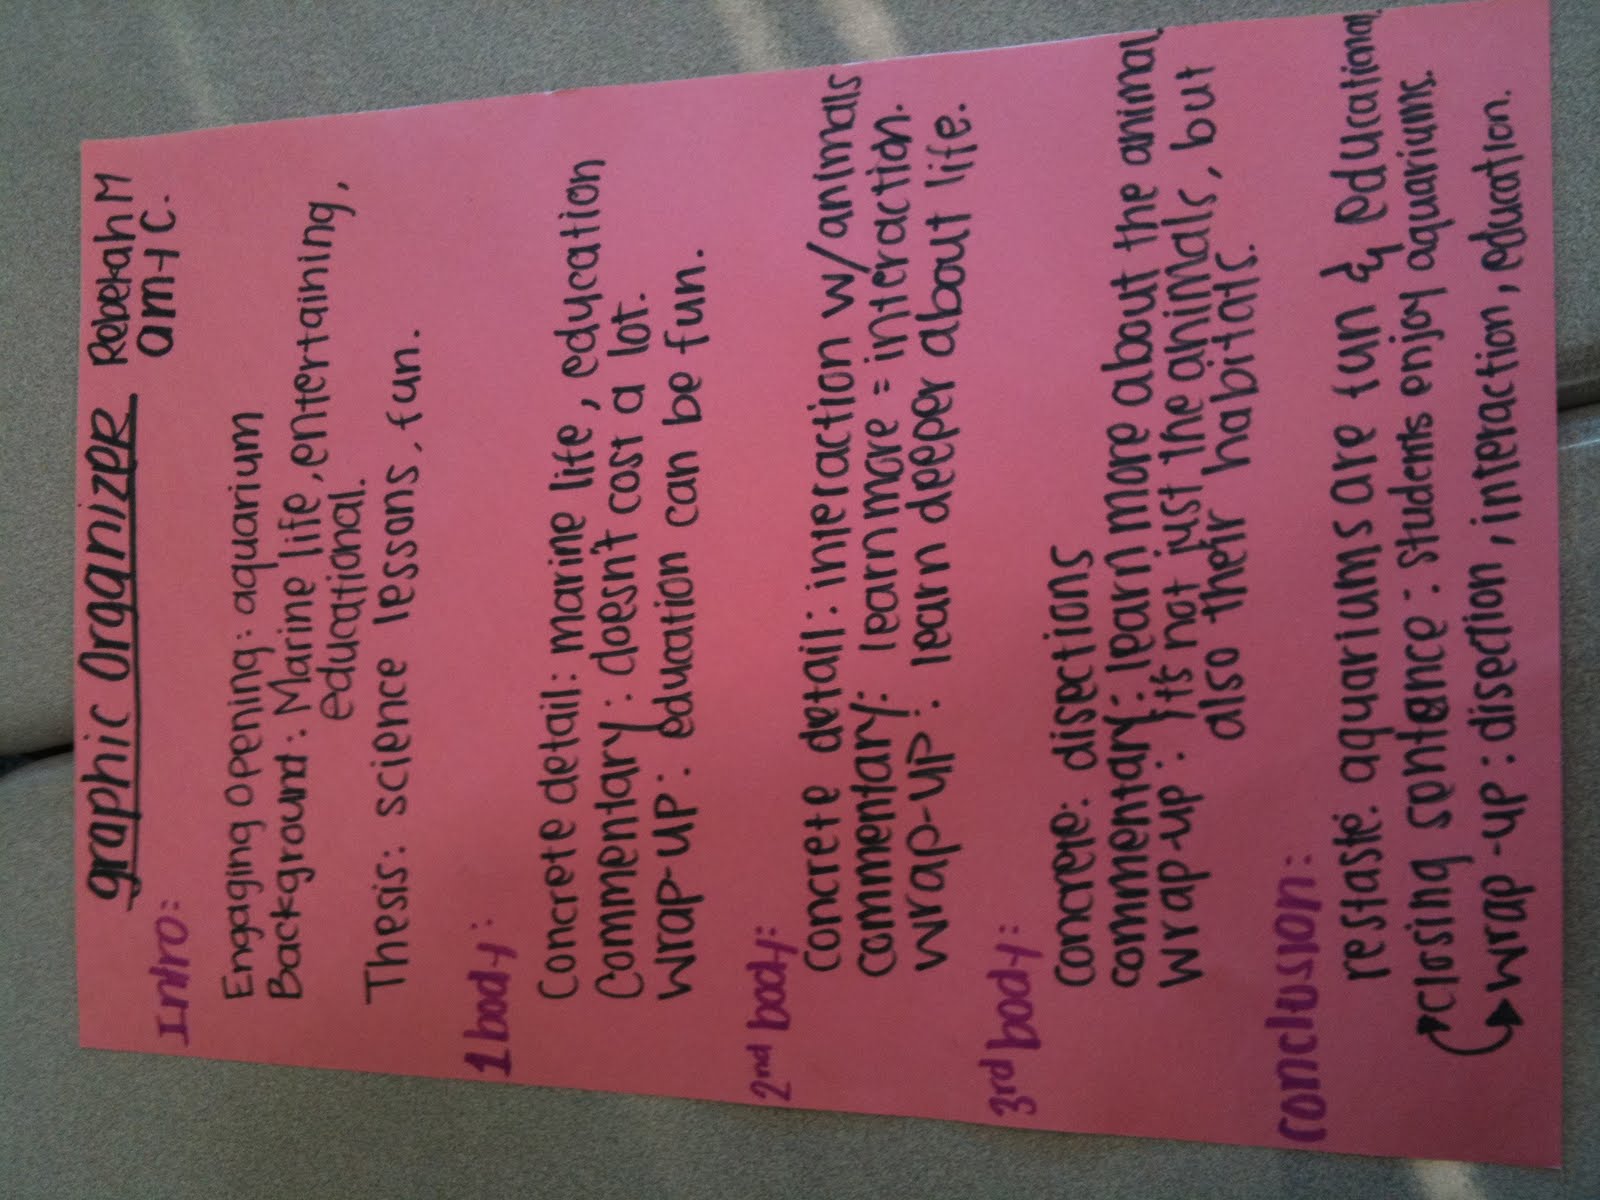 graphic Organizer Rebekah M
am-1 C.
Intro:
Engaging opening: aquarium
Background: Marine life, entertaining,
educational.
Thesis: science lessons, fun.
1 body:
Concrete detail: marine life, education
Commentary: doesn't cost a lot.
Wrap-up: education can be fun.
2nd body:
Concrete detail: interaction w/animals
commentary: learn more = interaction.
wrap-up: learn deeper about life.
3rd body:
concrete: disections
commentary: learn more about the animal
wrap-up: it's not just the animals, but
also their habitats.
conclusion:
restaste: aquariums are fun & educational
closing sentence: students enjoy aquariums.
wrap-up: disection, interaction, education.